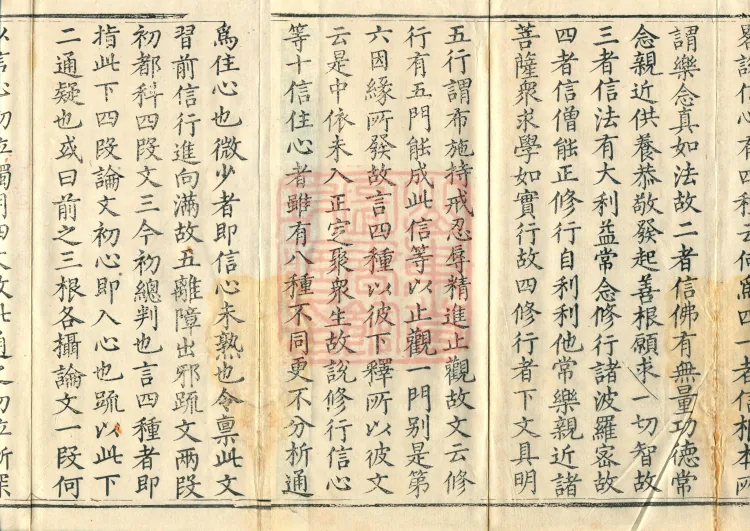 略說信心有四種云何為四一者信根本所
謂樂念真如法故二者信佛有無量功德常
念親近供養恭敬發起善根願求一切智故
三者信法有大利益常念修行諸波羅宻故
四者信僧能正修行自利利他常樂親近諸
菩薩衆求學如實行故四修行者下文具明
五行謂布施持戒忍辱精進止觀故文云修
行有五門能成此信等以止觀一門別是第
六因緣所發故言四種以彼下釋所以彼文
云是中依未入正定聚衆生故說修行信心
等十信住心者雖有八種不同更不分析通
為住心也微少者即信心未熟也令稟此文
習前信行進向滿故五離障出邪䟽文兩段
初都科四段文三今初總判也言四種者即
指此下四段論文初心即入心也䟽以此下
二通疑也或曰前之三根各攝論文一段何